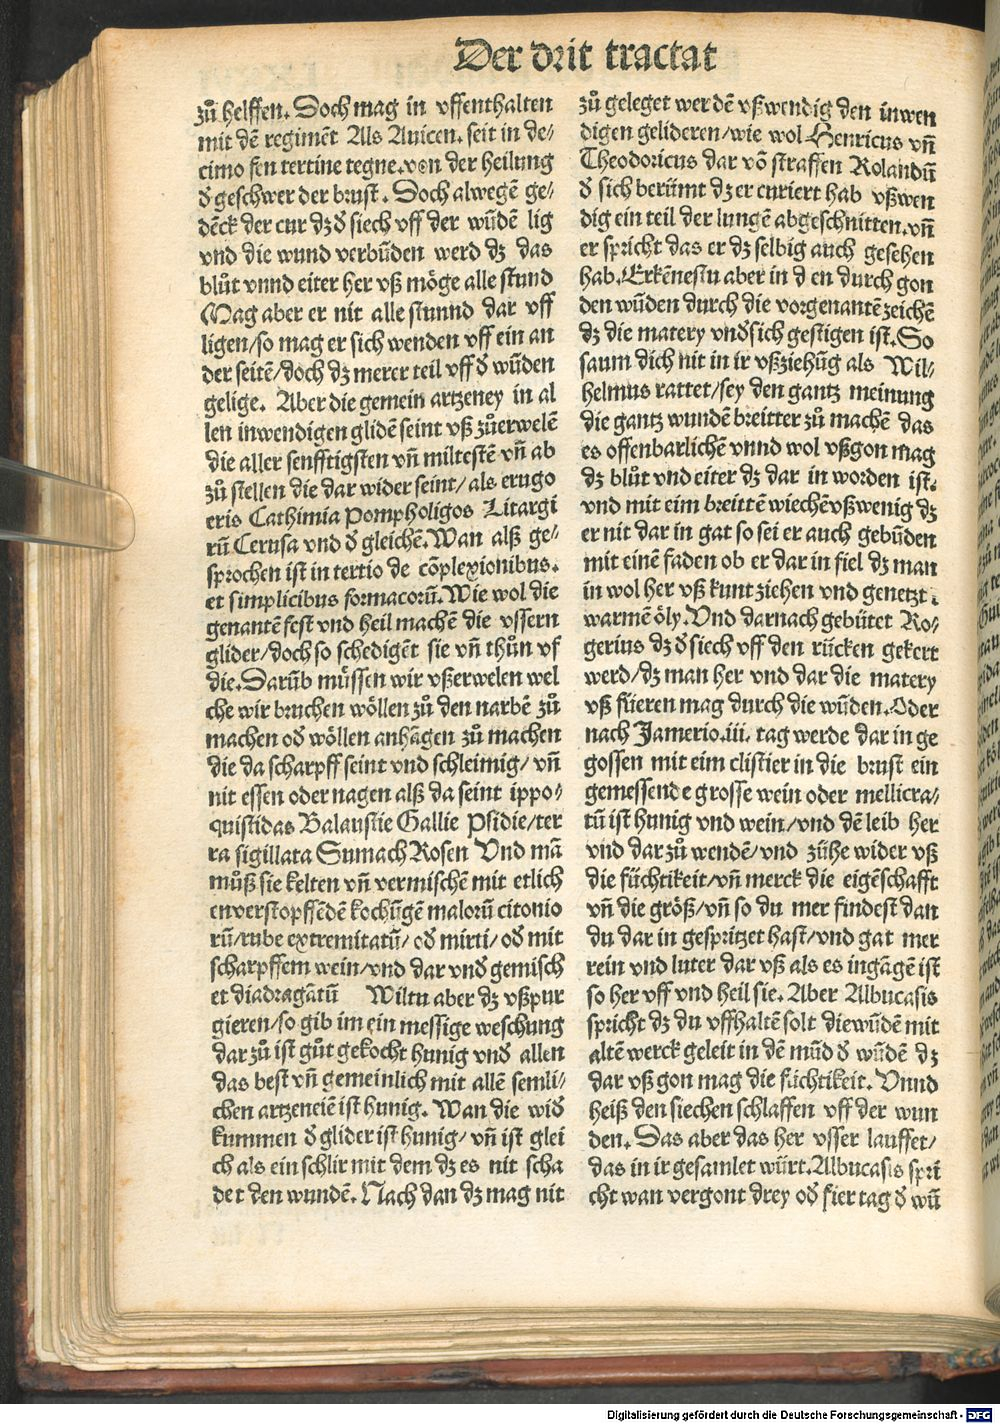 Der drit tractat
zů helffen. Doch mag in vffenthalten
mit dē regimēt Als Auicen. seit in de⸗
cimo fen tertine tegne. von der heilung
ď geschwer der brust. Doch alwegē ge⸗
dēck der cur dz ď siech vff der wūdē lig
vnd die wund verbūden werd dz das
blůt vnnd eiter her vß möge alle stund
Mag aber er nit alle stunnd dar vff
ligen/so mag er sich wenden vff ein an
der seitē/doch dz merer teil vff ď wūden
gelige. Aber die gemein artzeney in al
len inwendigen glidē seint vß zůerwelē
die aller senfftigsten vñ miltestē vñ ab
zů stellen die dar wider seint/als erugo
eris Cathimia Pompholigos Litargi
rū Cerusa vnd ď gleichē. Wan alß ge⸗
sprochen ist in tertio de cōplexionibus.
et simplicibus formacorū. Wie wol die
genantē fest vnd heil machē die vssern
glider/doch so schedigēt sie vñ thůn vf
die. Darūb müssen wir vßerwelen wel
che wir bruchen wöllen zů den narbē zů
machen oď wöllen anhāgen zů machen
die da scharpff seint vnd schleimig/vñ
nit essen oder nagen alß da seint ippo⸗
quistidas Balaustie Gallie Psidie/ter
ra sigillata Sumach Rosen Vnd mā
můß sie kelten vñ vermischē mit etlich
en verstopffēdē kochūgē malorū citonio
rū/rube extremitatū/oď mirti/oď mit
scharpffem wein/vnd dar vnď gemisch
et diadragātū Wiltu aber dz vßpur
gieren/so gib im ein messige weschung
dar zů ist gůt gekocht hunig vnď allen
das best vñ gemeinlich mit allē semli⸗
chen artzeneiē ist hunig. Wan die wiď
kummen ď glider ist hunig/vñ ist glei
ch als ein schlir mit dem dz es nit scha
det den wundē. Nach dan dz mag nit
zů geleget werdē vßwendig den inwen
digen gelideren/wie wol Henricus vñ
Theodoricus dar vō straffen Rolandū
ď sich berümt dz er curiert hab vßwen
dig ein teil der lungē abgeschnitten. vñ
er spricht das er dz selbig auch gesehen
hab. Erkēnestu aber in den durch gon
den wūden durch die vorgenantē zeichē
dz die matery vnď sich gestigen ist. So
saum dich nit in ir vßziehūg als Wil⸗
helmus rattet/sey den gantz meinung
die gantz wundē breitter zů machē das
es offenbarlichē vnnd wol vßgon mag
dz blůt vnd eiter dz dar in worden ist.
vnd mit eim breittē wiechē vßwenig dz
er nit dar in gat so sei er auch gebūden
mit einē faden ob er dar in fiel dz man
in wol her vß kunt ziehen vnd genetzt.
warmē öly. Vnd darnach gebütet Ro⸗
gerius dz ď siech vff den rücken gekert
werd/dz man her vnd dar die matery
vß füeren mag durch die wūden. Oder
nach Jamerio. iii. tag werde dar in ge
gossen mit eim clistier in die brust ein
gemessende grosse wein oder mellicra⸗
tū ist hunig vnd wein/vnd dē leib her
vnd dar zů wendē/vnd zühe wider vß
die füchtikeit/vñ merck die eigēschafft
vñ die größ/vñ so du mer findest dan
du dar in gespritzet hast/vnd gat mer
rein vnd luter dar vß als es ingāgē ist
so her vff vnd heil sie. Aber Albucasis
spricht dz du vffhaltē solt die wūdē mit
altē werck geleit in dē mūd ď wūdē dz
dar vß gon mag die füchtikeit. Vnnd
heiß den siechen schlaffen vff der wun
den. Das aber das her vsser lauffet/
das in ir gesamlet würt. Albucasis spri
cht wan vergont drey oď fier tag ď wū
Digitalisierung gefördert durch die Deutsche Forschungsgemeinschaft - DFG